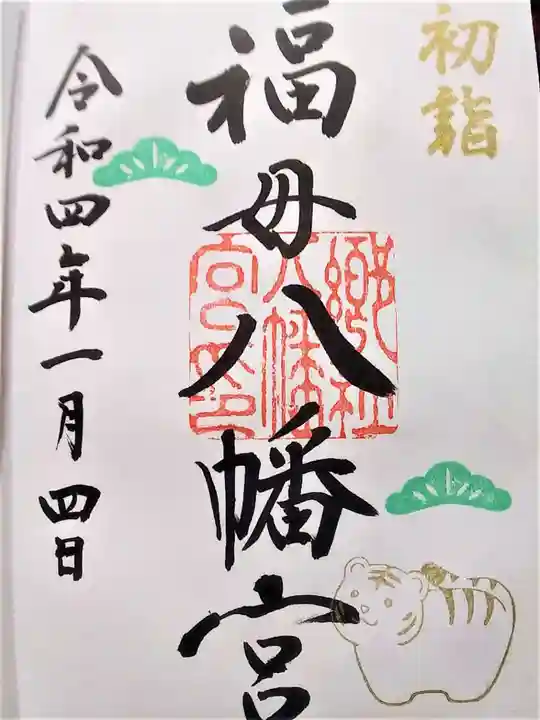 初詣
福母八幡宮
郷社
八幡
宮印
令和四年一月四日